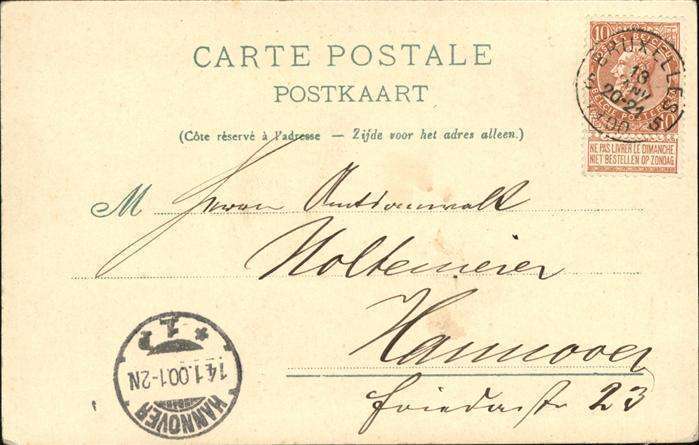 CARTE POSTALE
POSTKAART
(Côte réservé à l'adresse — Zijde voor het adres alleen.)
10
BRUXELLES 5
13
JANV
20-21
1900
NE PAS LIVRER LE DIMANCHE
NIET BESTELLEN OP ZONDAG
M Herrn Amtsanwalt
Noltemeier
Hannover
Friedrichstr 23
HANNOVER
14.1.00.1-2N
* 1